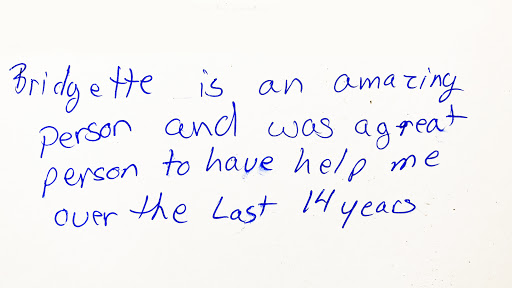 Bridgette is an amazing
person and was a great
person to have help me
over the Last 14 years